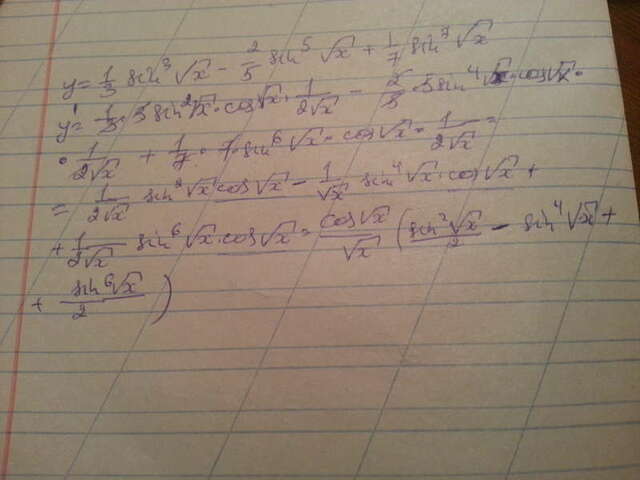 y = 1/3 sin³ √x − 2/5 sin⁵ √x + 1/7 sin⁷ √x
y' = 1/3 · 3 sin² √x · cos √x · 1/(2√x) − 2/5 · 5 sin⁴ √x · cos √x ·
· 1/(2√x) + 1/7 · 7 · sin⁶ √x · cos √x · 1/(2√x) =
= 1/(2√x) sin² √x cos √x − 1/√x sin⁴ √x · cos √x +
+ 1/(2√x) sin⁶ √x · cos √x = cos √x/√x (sin² √x/2 − sin⁴ √x +
+ sin⁶ √x/2)